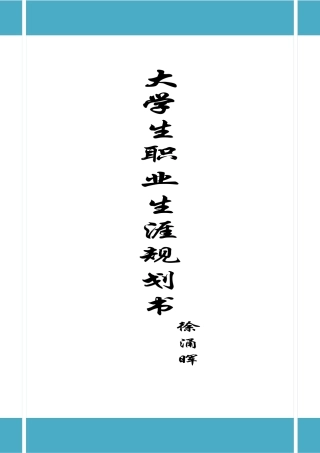 大学生职业生涯规划书
徐涌晖